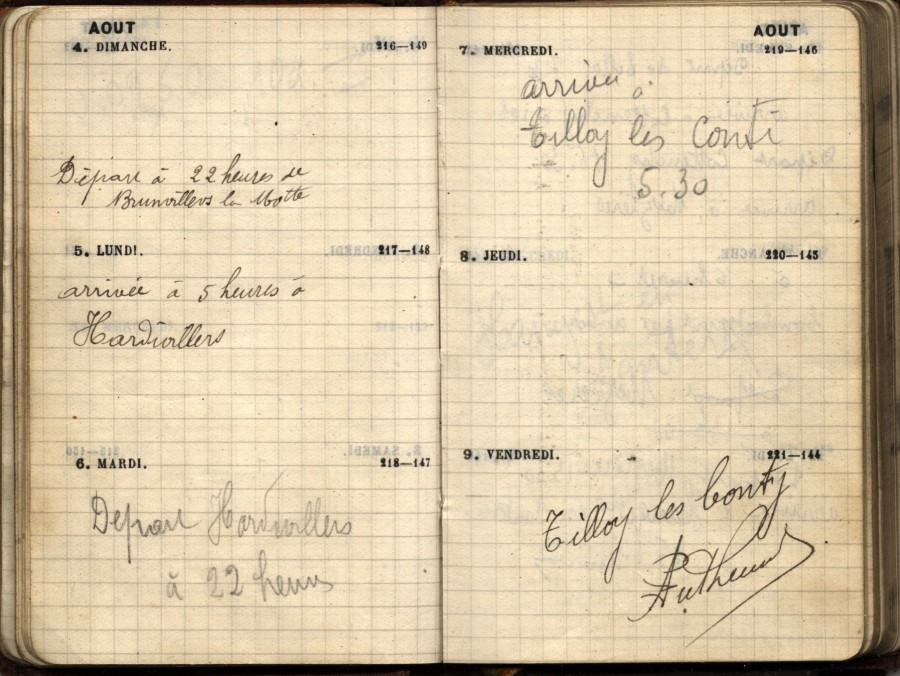 AOUT
4. DIMANCHE. 216—149
Départ à 22 heures de
Brunvillers la Motte
5. LUNDI. 217—148
arrivée à 5 heures à
Hardivillers
6. MARDI. 218—147
Depart Hardivillers
à 22 heures
AOUT
7. MERCREDI. 219—146
arrivée
à
Tilloy les Conti
5.30
8. JEUDI. 220—145
9. VENDREDI. 221—144
Tilloy les Conty